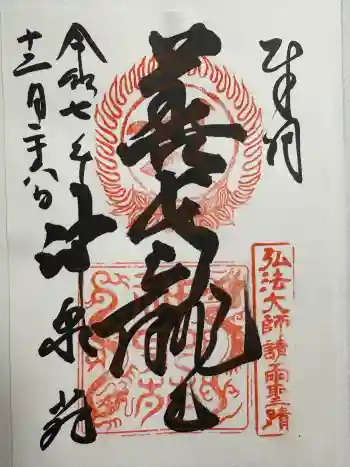 奉拝
弘法大師請雨聖蹟
善女龍王
令和七年
十二月二十八日
神泉苑